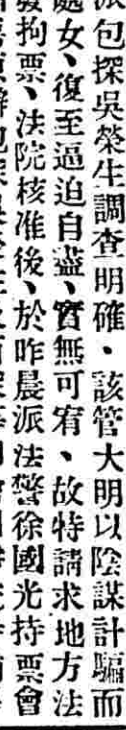 派包探吳榮生調查明確、該管大明以陰謀計騙而
處女、復至逼迫自盡、實無可宥、故特請求地方法
發拘票、法院核准後、於昨晨派法警徐國光持票會